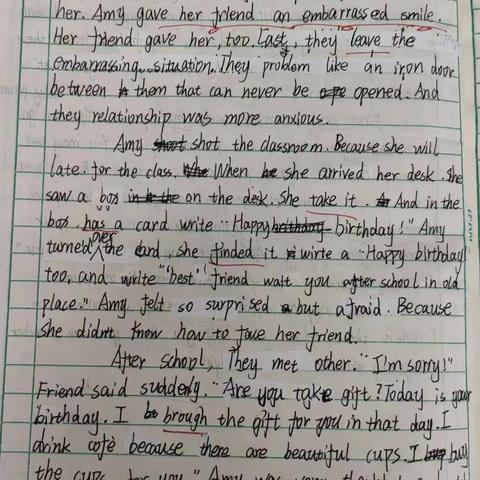 her. Amy gave her friend an embarrassed smile.
Her friend gave her, too. Last, they leave the
embarrassing situation. They problem like an iron door
between them that can never be opened. And
they relationship was more anxious.
Amy shot the classroom. Because she will
late for the class. When she arrived her desk. She
saw a box on the desk. She take it. And in the
box has a card write "Happy birthday!" Amy
turned over the card, she finded it wirte a "Happy birthday
too, and write "best" friend wait you after school in old
place." Amy felt so surprised but afraid. Because
she didn't know how to face her friend.
After school, They met other. "I'm sorry!"
Friend said suddenly. "Are you take gift? Today is your
birthday. I brough the gift for you in that day. I
drink cofe because there are beautiful cups. I buy
the cups for you." Amy was very